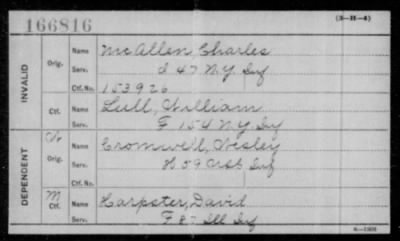 166816
(3-H-4)
INVALID
Orig.
Name McAllen, Charles
Serv. I 47 N.Y. Inf
Ctf. No. 153926
Ctf.
Name Lull, William
Serv. F 154 N.Y. Inf
DEPENDENT
W
Orig.
Name Cromwell, Wesley
Serv. H 59 USC Inf
Ctf. No.
M
Ctf.
Name Harpster, David
Serv. F 87 Ill Inf